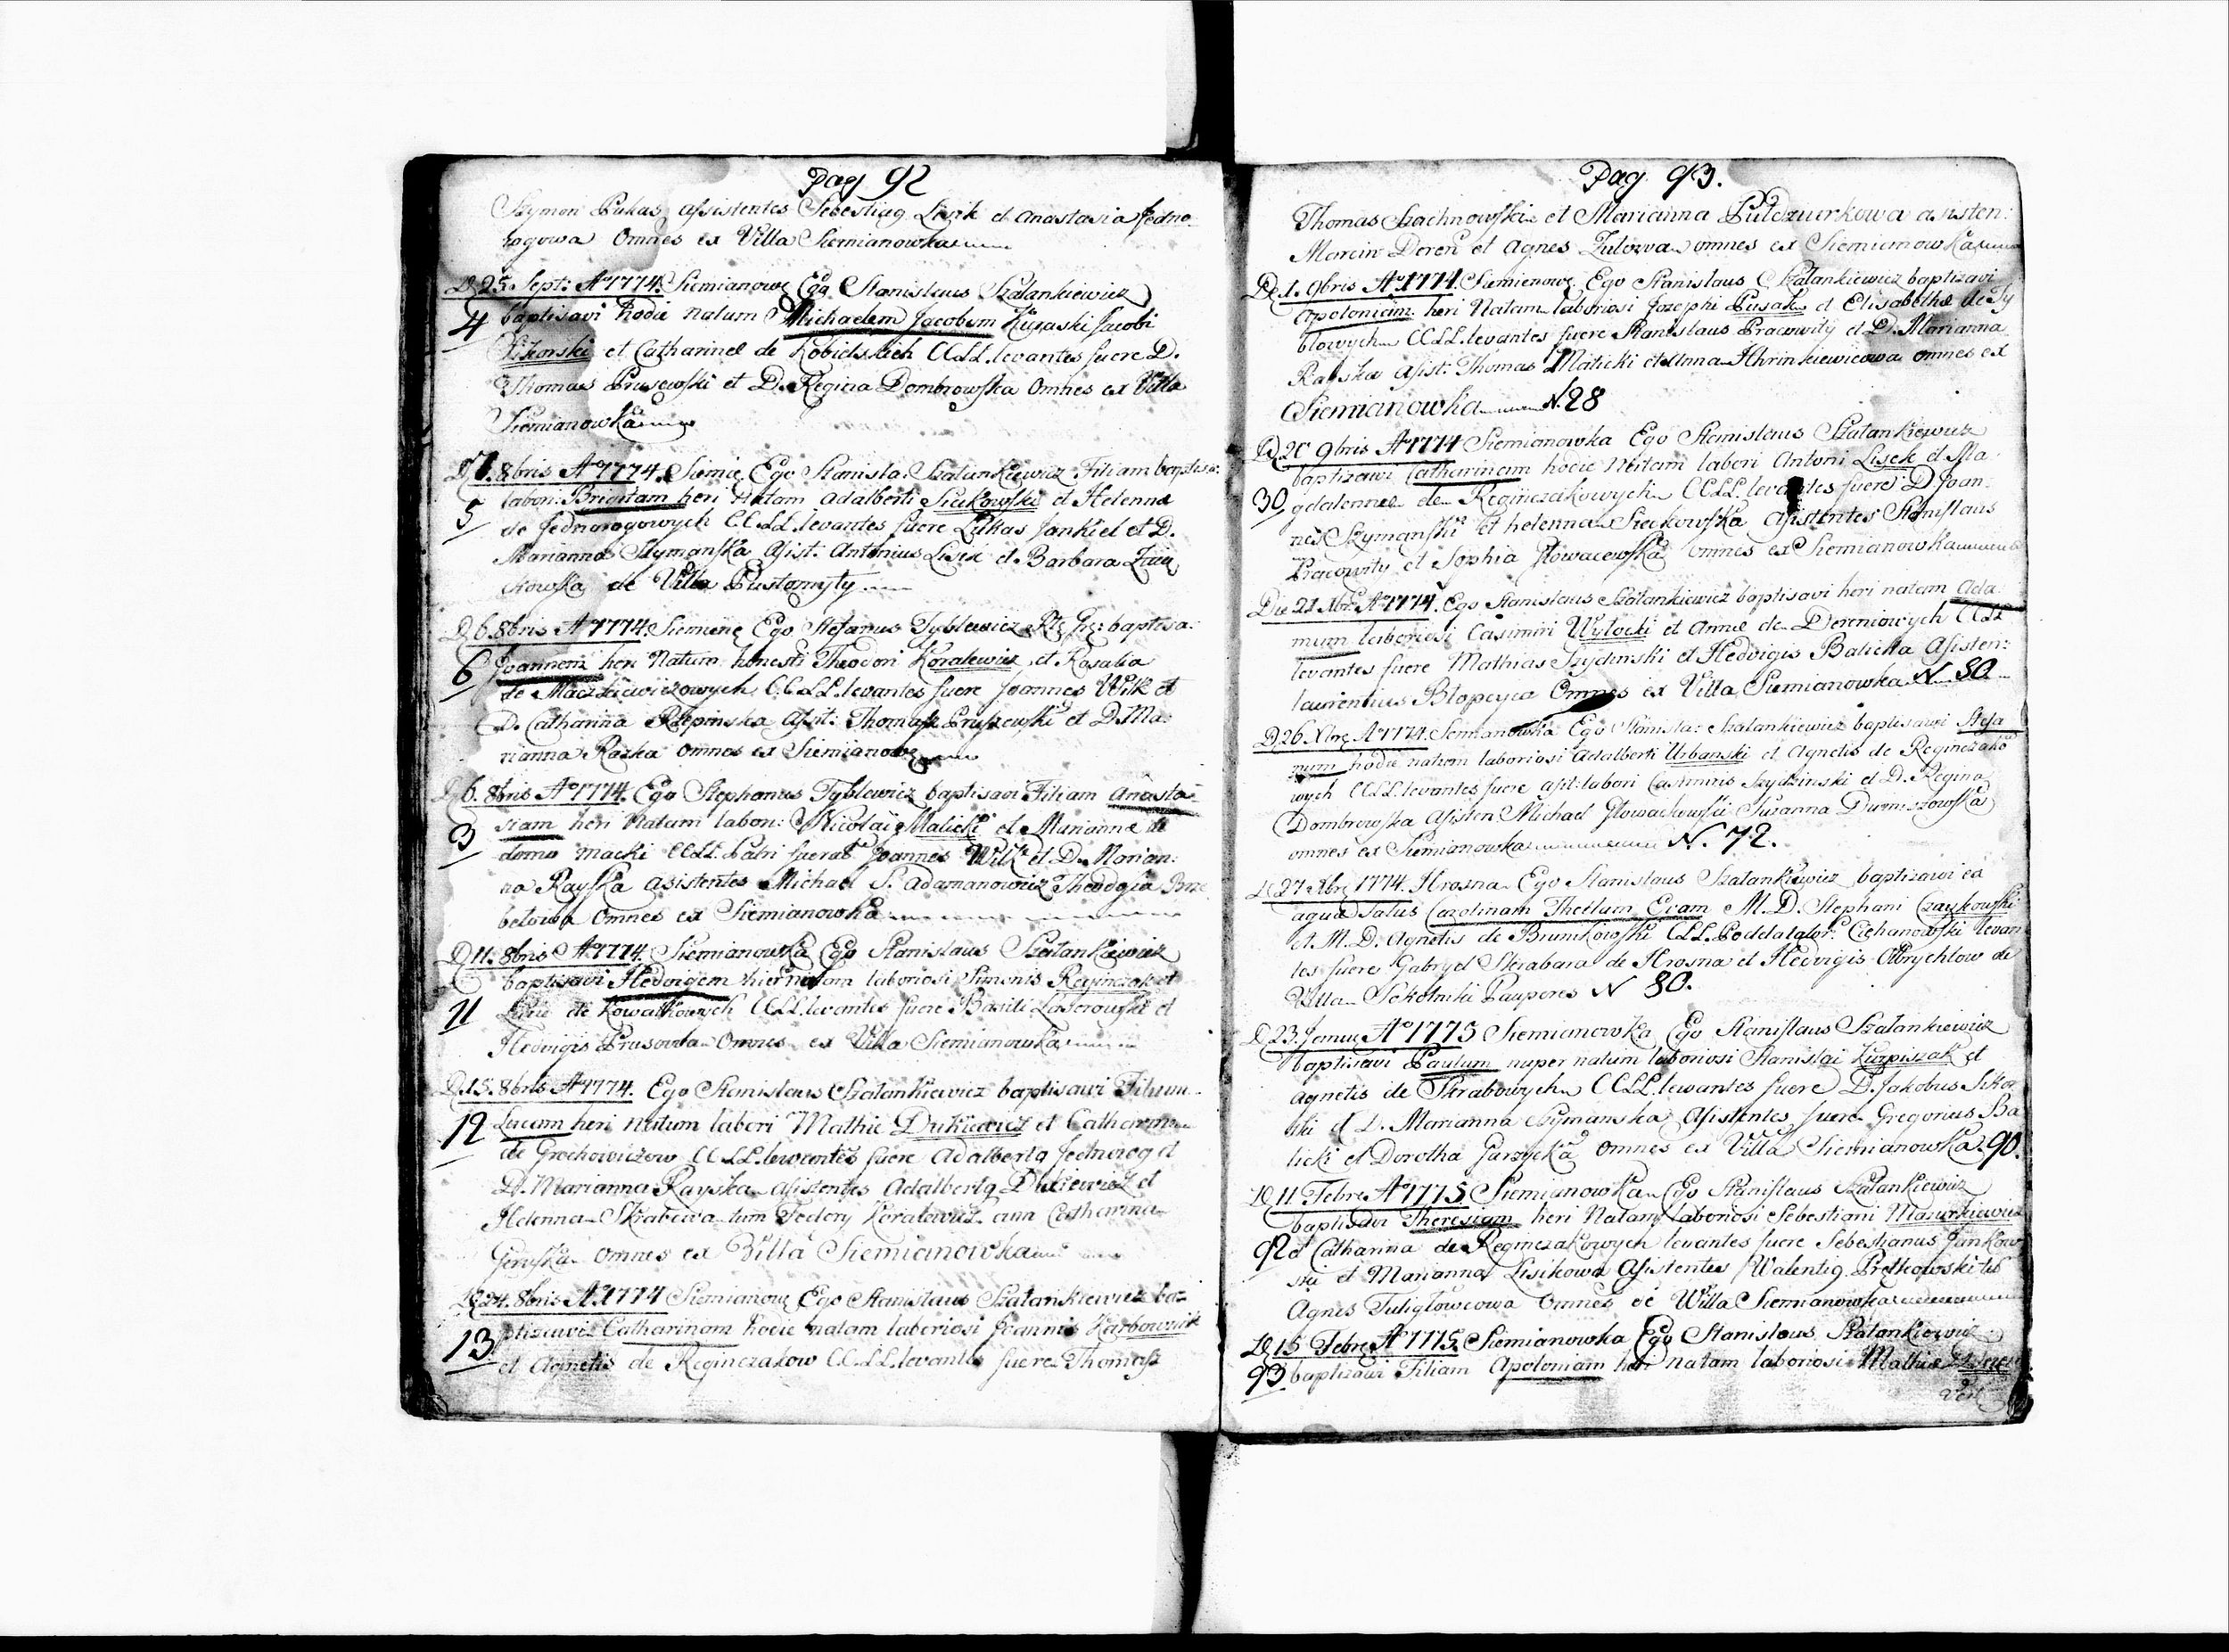 Pag 92
Szymon Pukas Assistentes Sebestiag Lisik et Anastasia Jedno-
rogowa Omnes ex Villa Siemianowka
D. 25 Sept: Ao 1774 Siemianowę Ego Stanislaus Szatankiewicz
4 baptisavi hodie natum Michaelem Jacobum Jacobi
Sikorski et Catharinæ de Kobielskich CCLL levantes fuere D.
Thomas Prusewski et D. Regina Dombrowska Omnes ex Villa
Siemianowka
8bris Ao 1774 Ego Stanisla: Szatankiewicz Filiam baptisa:
5 labori: Brigitam heri Natam Adalberti Siekowski et Helenna
de Jednorogowych CCLL levantes fuere Lukas Jankiel et D.
Marianna Szymanska Asist: Antonius Lisik et Barbara
de Villa Pustomyty
D. 6. 8bris Ao 1774 Ego Stefanus Tyblewicz baptisa:
6 Joannem heri Natum honesti Theodori Koralewicz et Rosalia
de CCLL levantes fuere Joannes Wilk et
D. Catharina Rzepinska Asist: Thomasz Pruszewski et D. Ma:
rianna Razka omnes ex Siemianowę
D. 6. 8bris Ao 1774. Ego Stephanus Tyblewicz baptisavi Filiam Anasta-
3 siam heri Natam labori: Nicolai Malicki et Marianna de
domo Macki CCLL Patri fuerat Joannes Wilk et D. Marian:
na Rayska Asistentes Michael S. Adamanowicz Theodosia
Omnes ex Siemianowka
D. 11. 8bris Ao 1774. Siemianowka Ego Stanislaus Szatankiewicz
baptisavi Hedvigem heri natam laboriosi Simonis Reginczak et
11 de Kowalkowych CCLL levantes fuere Basili et
Hedvigis Prusowka Omnes ex Villa Siemianowka
D. 15. 8bris Ao 1774. Ego Stanislaus Szatankiewicz baptisavi Filium
12 Lucam heri natum labori Mathie Dukiewicz et Catharinæ
de Grochowiczow CCLL levantes fuere Adalbertq Jednorog et
D. Marianna Rayska Asistentes Adalbertq Dukiewicz et
Helenna Skrabewa tum Fedory Koralewicz cum Catharina
omnes ex Villa Siemianowka
D. 24. 8bris Ao 1774 Siemianowę Ego Stanislaus Szatankiewicz ba-
13 ptizavi Catharinam hodie natam laboriosi Joannis Karbownik
et Agnetis de Reginczakow CCLL levantes fuere Thomasz
Pag 93.
Thomas Szachnowski et Marianna asisten:
Marcin Deren et Agnes omnes ex Siemianowka
D. 1. 9bris Ao 1774. Ego Stanislaus Szatankiewicz baptizavi
Apoloniam heri Natam laboriosi Josephi Pusak et Elisabethæ de Ty
blowych CCLL levantes fuere Stanislaus Pracowity et D. Marianna
Rayska Asist: Thomas Malicki et Anna Hhrinkiewicowa omnes ex
Siemianowka N. 28
D. 20 9bris Ao 1774 Siemianowka Ego Stanislaus Szatankiewicz
baptizawi Catharinam hodie Natam labori Antoni Lisek et Ma:
30 gdalennæ de Reginczakowych CCLL levantes fuere D Joan:
nes Szymanski et helenna Siekowska Asistentes Stanislaus
Pracowity et Sophia Glowacewska omnes ex Siemianowka
Die 21 Xbr. Ao 1774. Ego Stanislaus Szatankiewicz baptisavi heri natum Ada:
mum laboriosi Casimiri Wysocki et Annæ de Dereniowych CCLL
levantes fuere Mathias Szydinski et Hedvigis Balicka Asisten:
laurentius Omnes ex Villa Siemianowka N 80
D. 26. Xbrę Ao 1774. Siemianowka Ego Stanisla: Szatankiewicz baptisavi Stefa
num hodie natum laboriosi Adalberti Urbanski et Agnetis de Reginczako
wych CCLL levantes fuere Asit: labori Casimiris Szydzinski et D. Regina
Dombrowska Asisten Michael Glowackowski Susanna
omnes ex Siemianowka N. 72.
D. 27 Xbrę 1774. Hrosna Ego Stanislaus Szatankiewicz baptizavi ex
aqua Carolinam Theklam Evam M. D. Stephani Czaykowski
et M. D. Agnetis de CCLL Ciehanowski levan
tes fuere Gabryel Skrabara de Hrosna et Hedvigis de
Villa Sokolniki Pauperes N 80.
D. 23. Januę Ao 1775 Siemianowka Ego Stanislaus Szatankiewicz
baptisavi Paulum nuper natum laboriosi Stanislai Kurpiszak et
Agnetis de Skrabowych CCLL levantes fuere D. Jakobus Sikor
ski et D. Marianna Szymanska Asistentes fuere Gregorius Ba
licki et Dorotha Garzycka omnes ex Villa Siemianowka 90.
D. 11 Febrę Ao 1775 Siemianowka Ego Stanislaus Szatankiewicz
baptisavi Theresiam heri Natam laboriosi Sebestiani Mazurkiewicz
92 et Catharina de Reginczakowych levantes fuere Sebestianus Jankow
ski et Marianna Lisikowa Asistentes Walentiq
Agnes Tuliglowcowa Omnes de Willa Siemianowka
D. 15 Febrę Ao 1775 Siemianowka Ego Stanislaus Szatankiewicz
93 baptisavi Filiam Apoloniam heri natam laboriosi Mathiæ